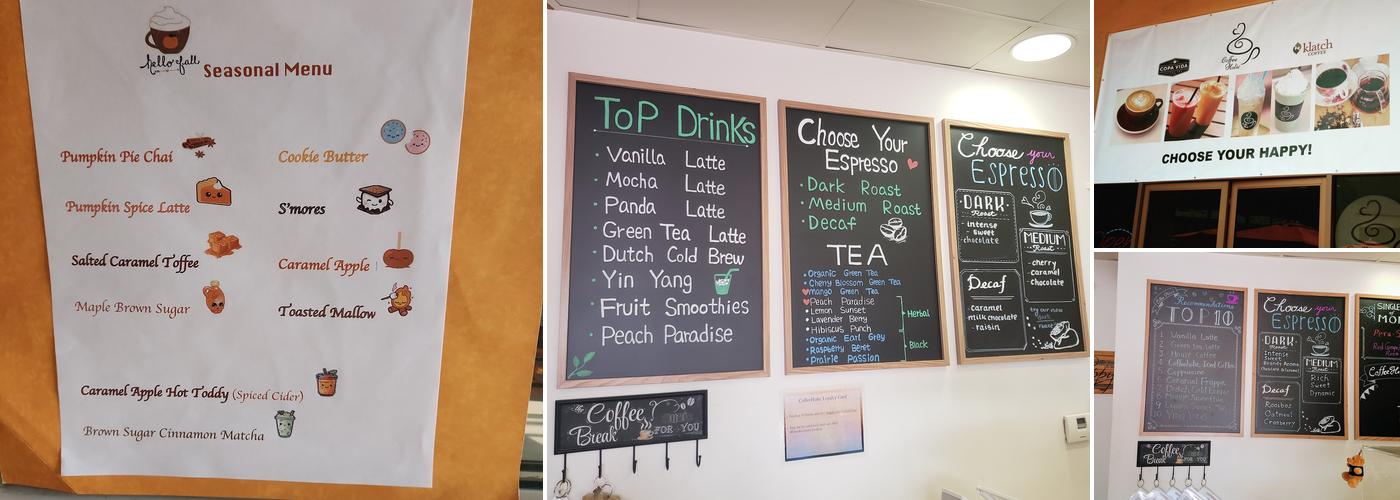 hello fall
Seasonal Menu
Pumpkin Pie Chai
Cookie Butter
Pumpkin Spice Latte
S'mores
Salted Caramel Toffee
Caramel Apple
Maple Brown Sugar
Toasted Mallow
Caramel Apple Hot Toddy (Spiced Cider)
Brown Sugar Cinnamon Matcha
ToP Drinks
Vanilla Latte
Mocha Latte
Panda Latte
Green Tea Latte
Dutch Cold Brew
Yin Yang
Fruit Smoothies
Peach Paradise
Choose Your
Espresso
Dark Roast
Medium Roast
Decaf
TEA
Organic Green Tea
Cherry Blossom Green Tea
Mango Green Tea
Peach Paradise
Lemon Sunset
Lavender Berry
Hibiscus Punch
Herbal
Organic Earl Grey
Raspberry Beret
Prairie Passion
Black
Choose your
Espresso
DARK
Roast
intense
sweet
chocolate
MEDIUM
Roast
cherry
caramel
chocolate
Decaf
caramel
milk chocolate
raisin
try our new
Coffee
Break
FOR YOU
CoffeeHolic Loyalty Card
COPA VIDA
Coffee
Holic
klatch
COFFEE
CHOOSE YOUR HAPPY!
Recommendations
TOP 10
1 Vanilla Latte
2 Green tea Latte
3 House Coffee
4 CoffeeHolic Iced Coffee
5 Cappuccino
6 Caramel Frappe
Choose your
Espresso
DARK
Roast
Intense
Sweet
MEDIUM
Roast
Rich
Sweet
Dynamic
Decaf
Rooibos
Oatmeal
Cranberry
Coffee
Break
FOR YOU